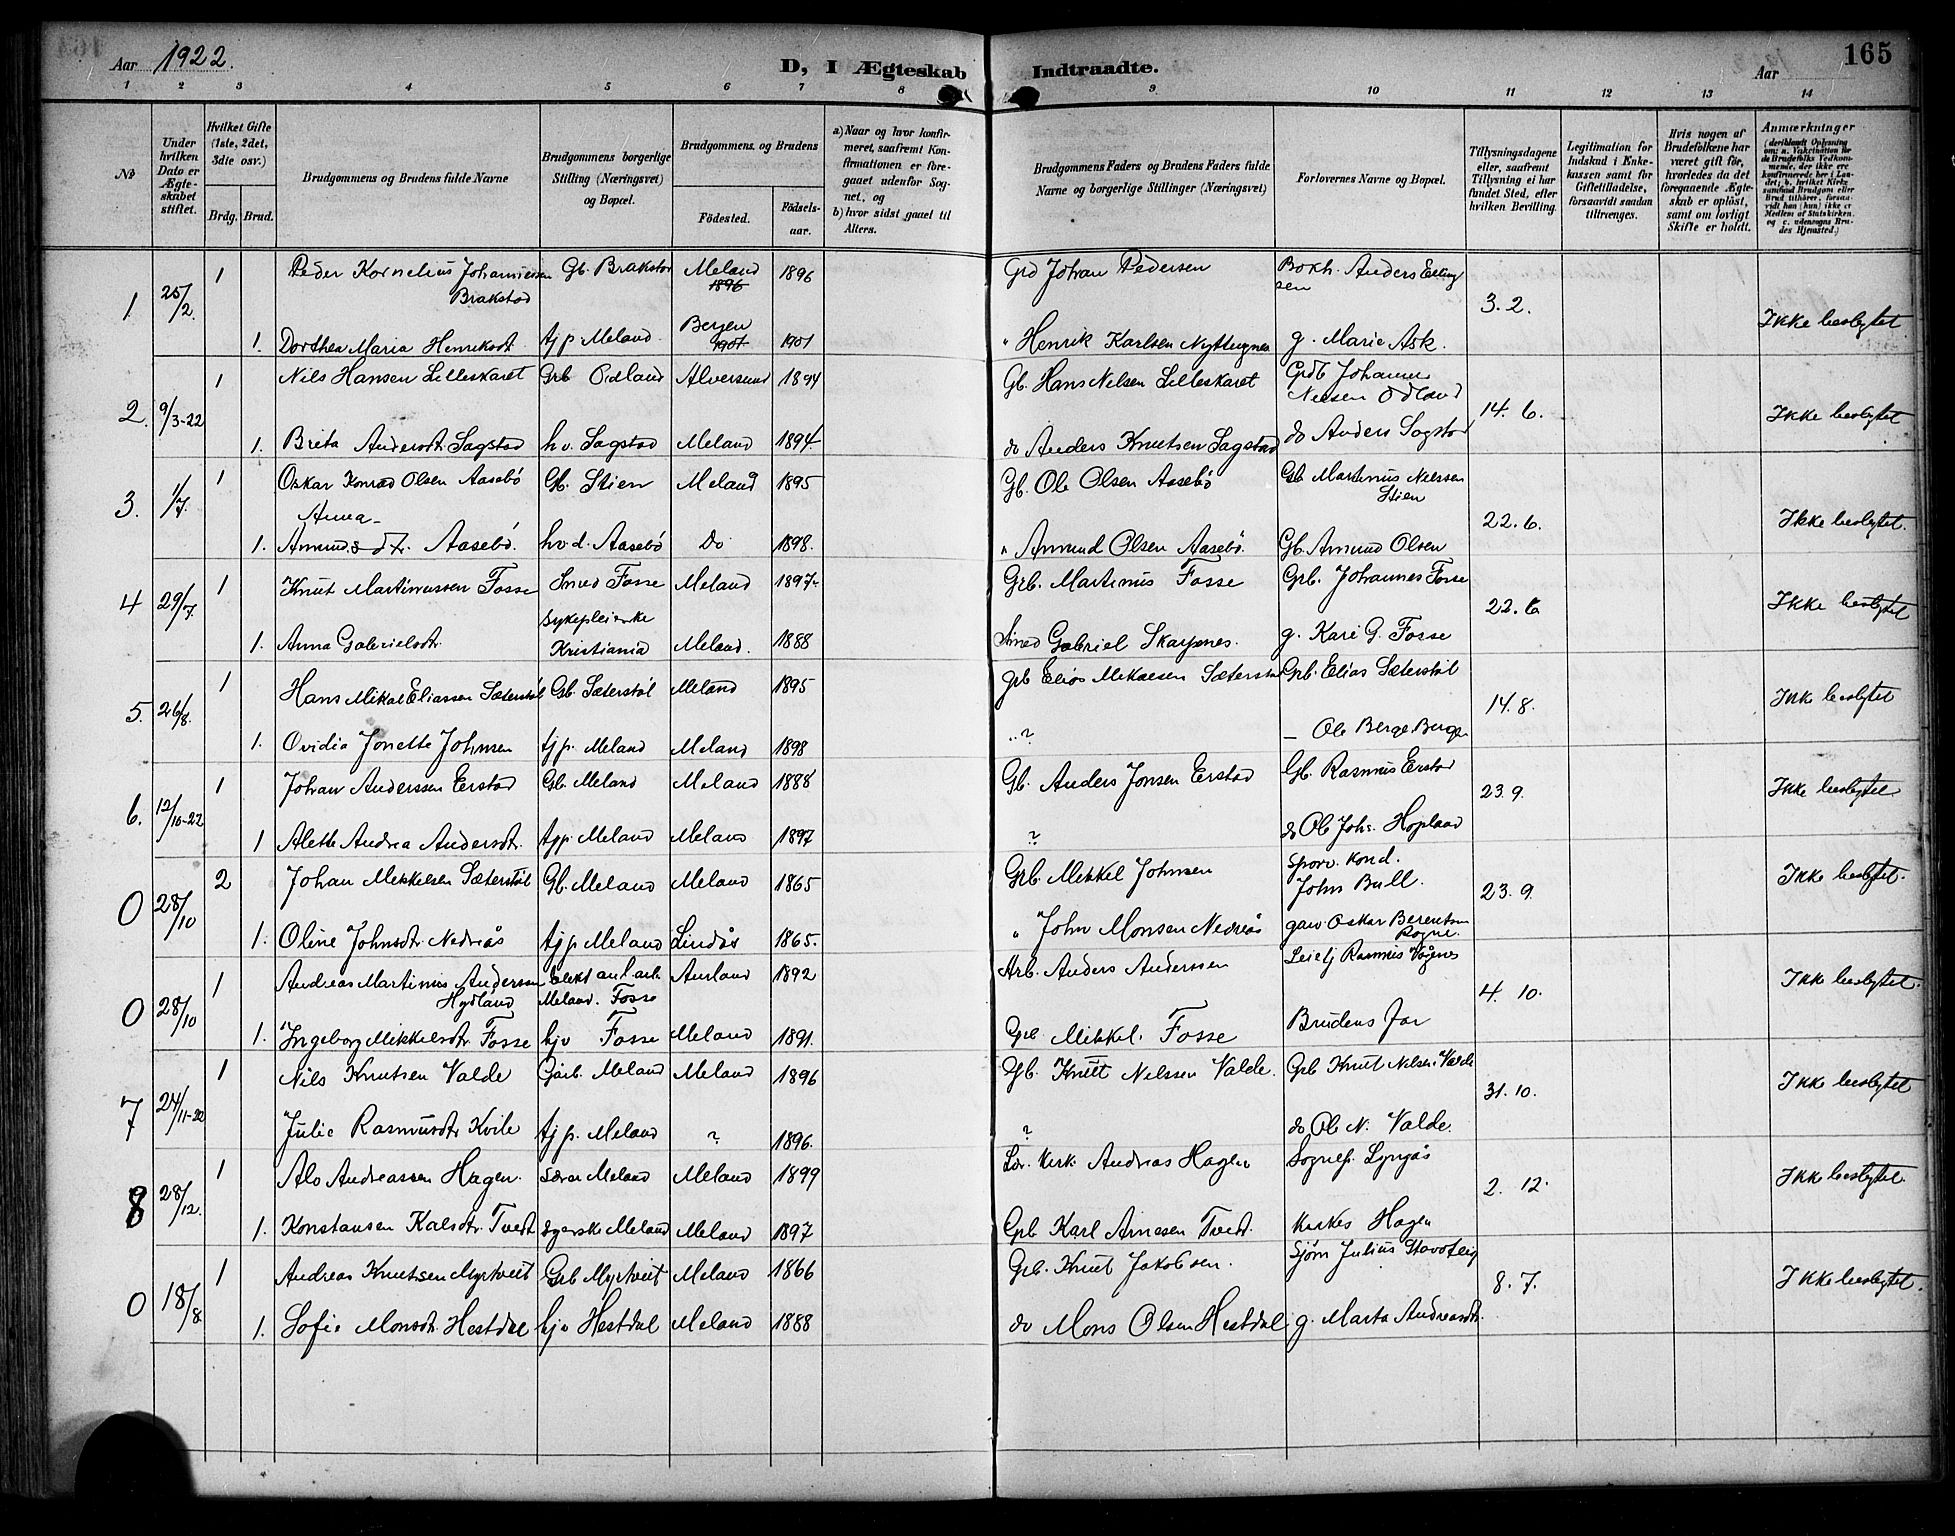 Aar 1922.
D, I Ægteskab Indtraadte.
Aar
165
1 2 3 4 5 6 7 8 9 10 11 12 13 14
No
Under hvilken Dato er Ægteskabet stiftet.
Hvilket Gifte (1ste, 2det, 3die osv.)
Brdg. Brud.
Brudgommens og Brudens fulde Navne
Brudgommens borgerlige Stilling (Næringsvei) og Bopæl.
Brudgommens. og Brudens
Födested. Födsels-aar.
a) Naar og hvor konfirmeret, saafremt Konfirmationen er foregaaet udenfor Sognet, og
b) hvor sidst gaaet til Alters.
Brudgommens Faders og Brudens Faders fulde Navne og borgerlige Stillinger (Næringsvei)
Forlovernes Navne og Bopæl.
Tillysningsdagene eller, saafremt Tillysning ei har fundet Sted, efter hvilken Bevilling.
Legitimation for Indskud i Enkekassen samt for Giftetilladelse, forsaavidt saadan tiltrænges.
Hvis nogen af Brudefolkene har været gift för, hvorledes da det foregaaende Ægteskab er oplöst, samt om lovligt Skifte er holdt.
Anmærkninger (deriblandt Oplysning om: a. Vakcination for de Brudefolks Vedkommende, der ikke ere konfirmerede her i Landet; b. hvilket Kirkesamfund Brudgom eller Brud tilhörer, forsaavidt han (hun) ikke er Medlem af Statskirken, og c. udensogns Brudes Hjemsted.)
1. 25/2. 1 Peder Kornelius Johannessen Brakstad Gb. Brakstad Meland 1896 1896 Grd Johan Pedersen Bokh. Anders Ellingsen 3. 2. Ikke beslegtet
1. Dorthea Maria Henriksdt. tjp Meland. Bergen 1901 1901 " Henrik Karlsen g. Marie Ask.
2. 9/3-22 1 Nils Hansen Lilleskaret Grb Odland Alversund 1894 Gb. Hans Nelsen Lilleskaret Grdb Johannes Nilsen Odland 14. 6. Ikke beslegtet
1. Brita Andersdt. Sagstad hv. Sagstad Meland 1894. do Anders Knutsen Sagstad do Anders Sagstad
3. 1/7. 1 Oskar Konrad Olsen Aasebö Gb. Stien Meland 1895 Gb. Ole Olsen Aasebö Gb Martinus Nilssen Stien 22. 6. Ikke beslegtet.
Anna
1. Amunds dt. Aasebö. hv. d. Aasebö Do 1898. " Amund Olsen Aasebö. Gb. Amund Olsen
4 29/7. 1 Knut Martinussen Fosse Smed Fosse Meland 1897- Grb. Martinus Fosse Grb. Johannes Fosse 22. 6 Ikke beslegtet
1. Anna Gabrielsdt. Sykepleierske Kristiania Meland. 1888 Smed Gabriel g. Kari G. Fosse
5. 26/8. 1 Hans Mikal Eliassen Sæterstöl Gb. Sæterstöl Meland 1895 grb Elias Mikalsen Sæterstöl Grb. Elias Sæterstöl 14. 8. Ikke beslegtet
1. Ovidia Jonette Johnsen tjp. Meland Meland 1898 " ? – Ole Berge Berge
6. 12/10-22 1 Johan Anderssen Erstad Gb. Meland Meland 1888 Gb. Anders Jonsen Erstad Gb. Rasmus Erstad 23. 9. Ikke beslegtet.
1 Alette Andrea Andersdt. tjp Meland Meland 1897 ? do Ole Johs. Hopland
0 28/10 2 Johan Mikkelsen Sæterstöl Gb. Meland Meland 1865 Grb. Mikkel Johnsen Sporv. Kond. John Bull. 23. 9. Ikke beslegtet.
1. Oline Johnsdt. Nedreås tjp Meland Lindås 1865. " John Monsen Nedreås garv Oskar Berentsen Rogne.
0 28/10 1 Andreas Martinus Andersen Hydland Elekt anl. arb. Meland. Fosse Aurland 1892 Arb. Anders Anderssen Leielj Rasmus Vågnes 4. 10. Ikke beslegtet.
1. Ingeborg Mikkelsdt. Fosse hjv Fosse Meland 1891. Grb Mikkel Fosse Brudens far
7 24/11-22 1 Nils Knutsen Valde Garb. Meland Meland 1896 Gb. Knut Nilssen Valde. Grb Knut Nilsen Valde 31. 10. Ikke beslegtet
Julie Rasmusdtr Kvile tjp. Meland ? 1896. ? do Ole N. Valde.
8 28/12. 1 Alv Andreassen Hagen. Lærer Meland Meland 1899 Lær. Kirk. Andreas Hagen Sognepr. Lyngås 2. 12. Ikke beslegtet.
1. Konstansen Kalsdtr. Tvedt Syerske Meland Meland 1897 Grb Karl Arnesen Tvedt. Kirkes Hagen
0 18/8. 1 Andreas Knutsen Myrtveit Grb Myrtveit Meland 1866 Grb. Knut Jakobsen. Sjøm Julius 8. 7. Ikke beslegtet.
1. Sofie Monsdt. Hestdal hjv Hestdal Meland 1888 do Mons Olsen Hestdal g. Marta Andreasdt.